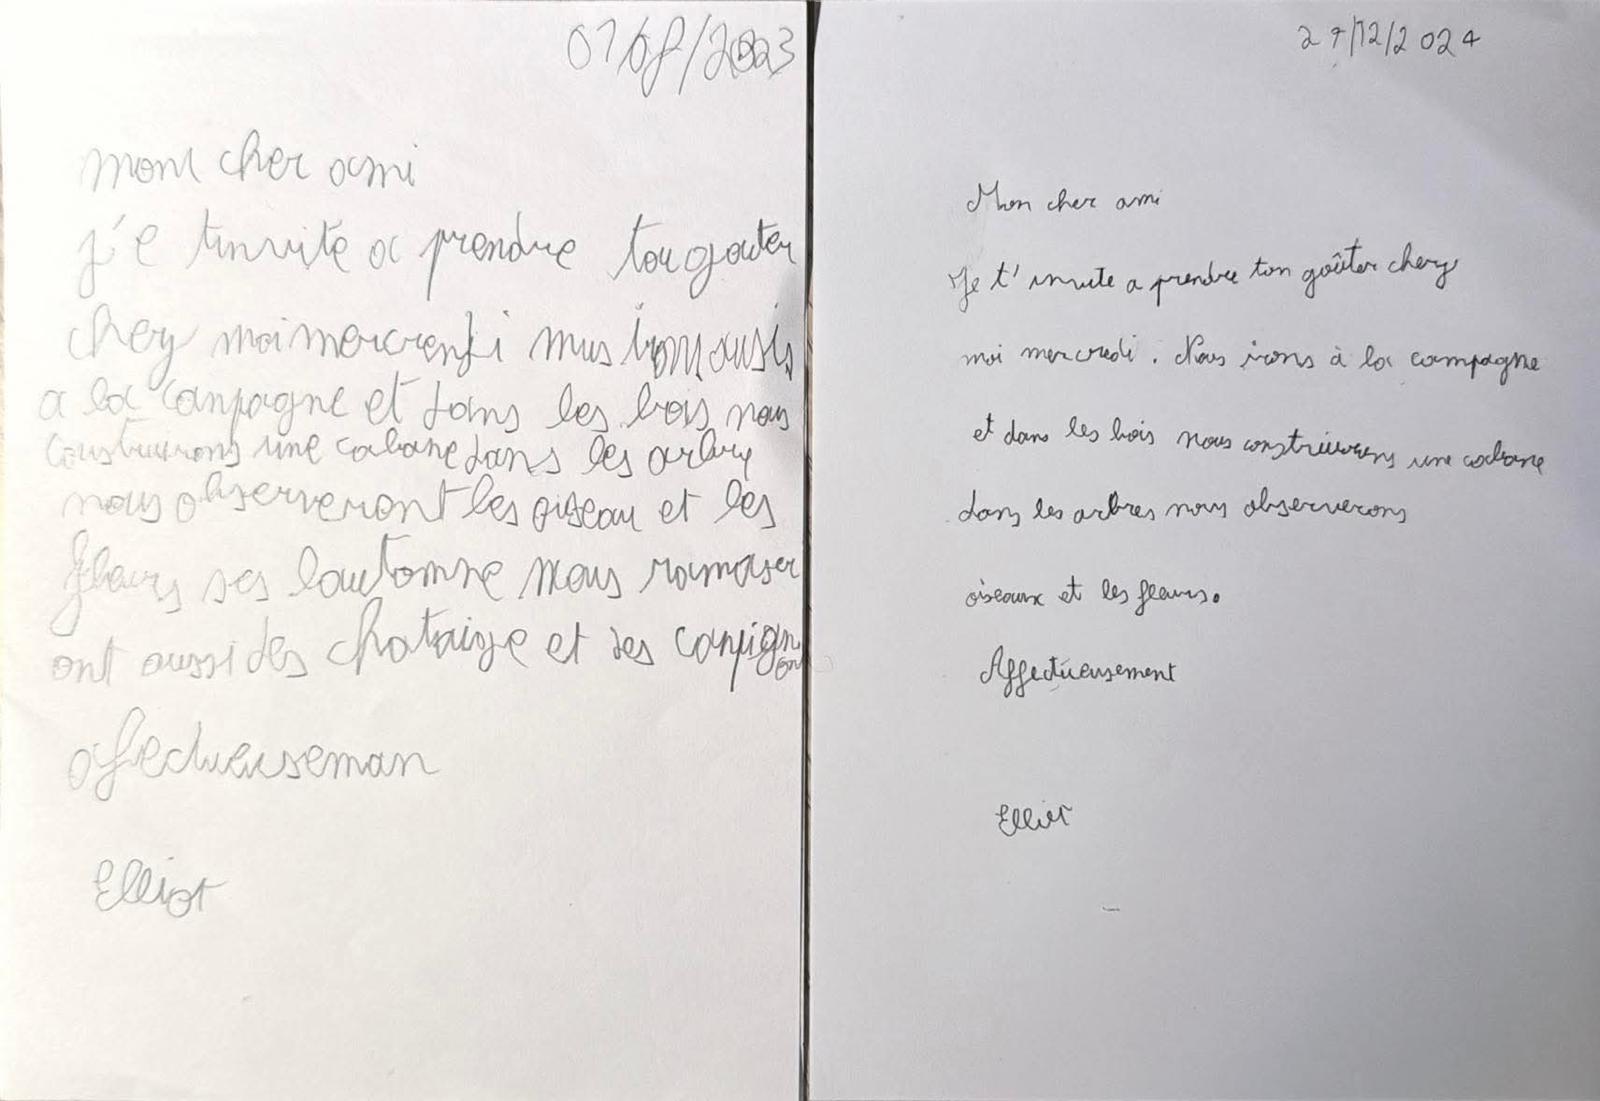 01/08/2023
mont cher ami
j'e tinvité a prendre tou gouter
chez moi mercrendi nous irons ausis
a la canpagne et dans les bois nous
construirons une cabane dans les arbre
nous observeront les oiseau et les
fleurs ses lautomne nous ramaser
ont aussi des chataigne et des canpign
on
afectueuseman
Elliot
27/12/2024
Mon cher ami
Je t'invite a prendre ton goûter chez
moi mercredi. Nous irons à la campagne
et dans les bois nous construirons une cabane
dans les arbres nous observerons
oiseaux et les fleurs.
Affectueusement
Elliot